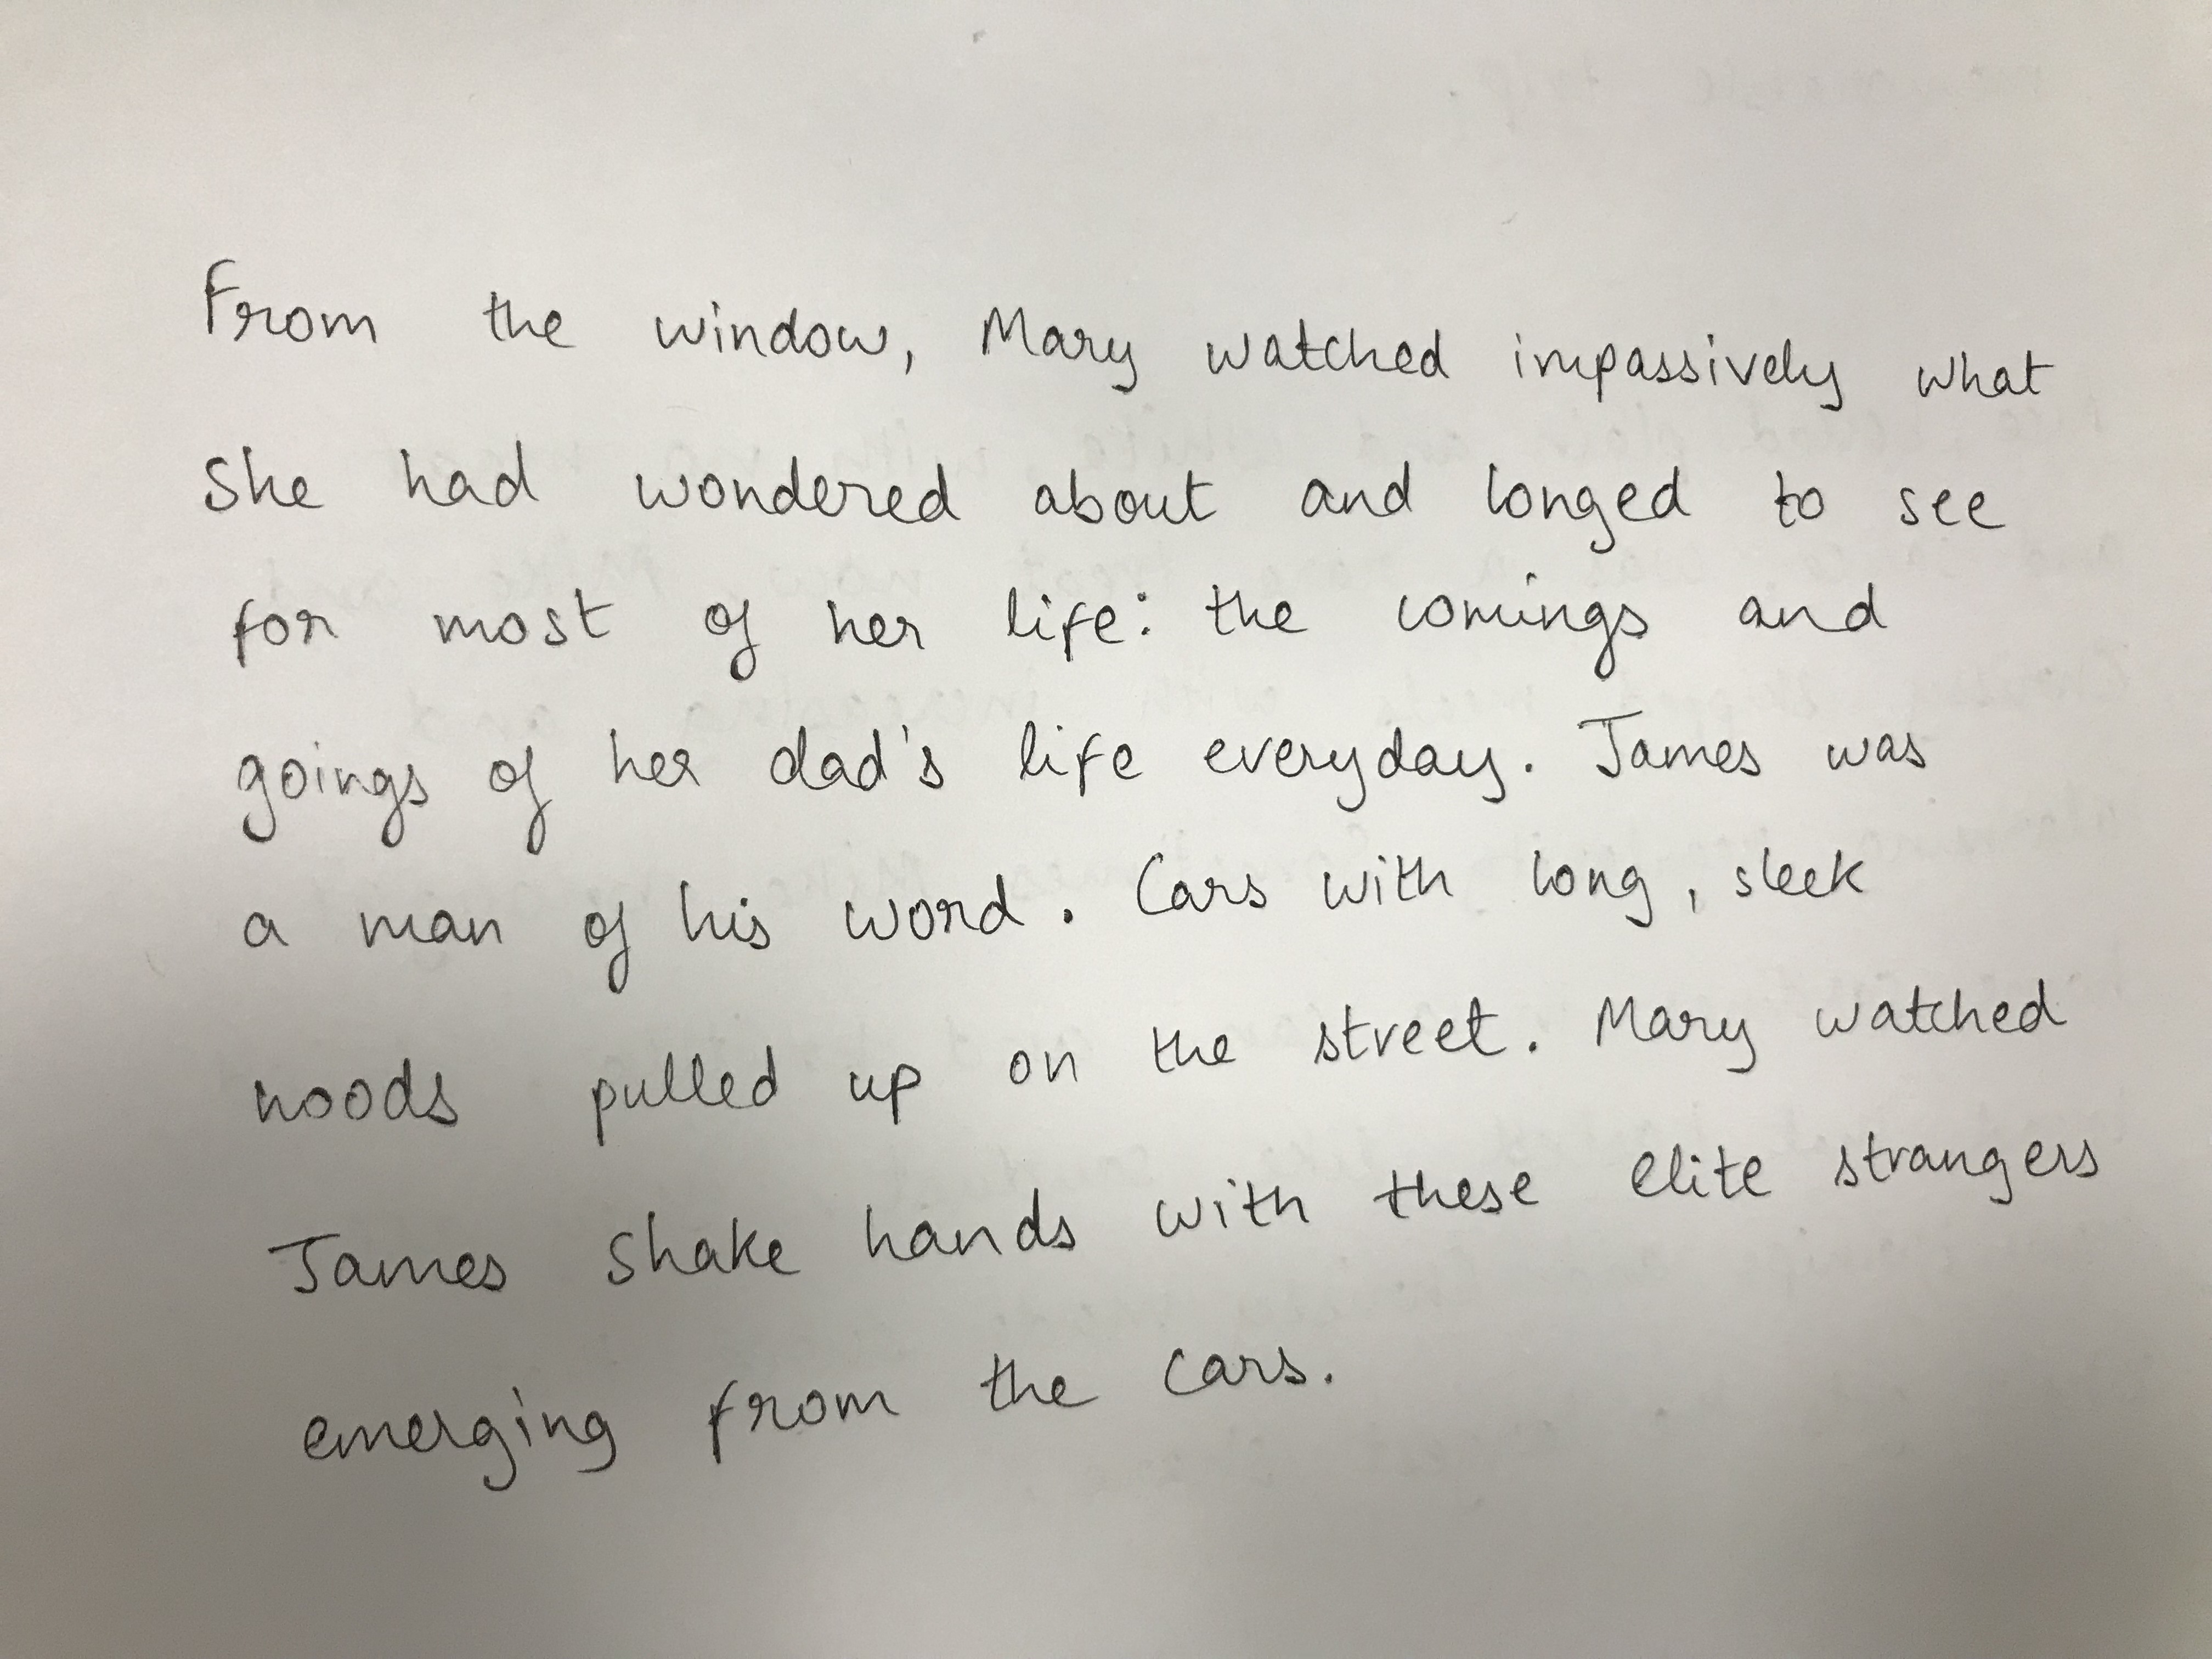 From the window, Mary watched impassively what
She had wondered about and longed to see
for most of her life: the comings and
goings of her dad's life everyday. James was
a man of his word. Cars with long, sleek
hoods pulled up on the street. Mary watched
James shake hands with these elite strangers
emerging from the cars.